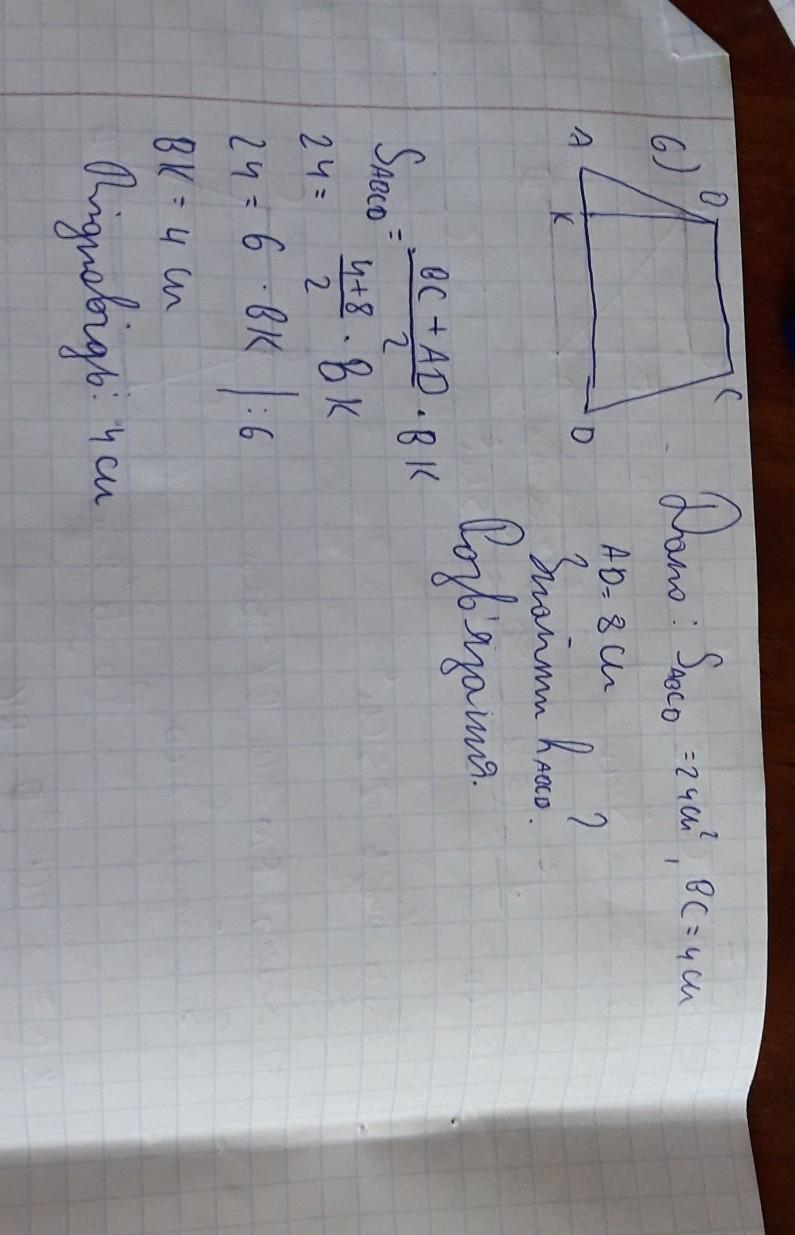 6)
B
C
A
K
D
Дано: S ABCD = 24 см², BC = 4 см
AD = 8 см
Знайти h ABCD. ?
Розв'язання.
S ABCD = BC + AD / 2 · BK
24 = 4+8 / 2 · BK
24 = 6 · BK | :6
BK = 4 см
Відповідь: 4 см